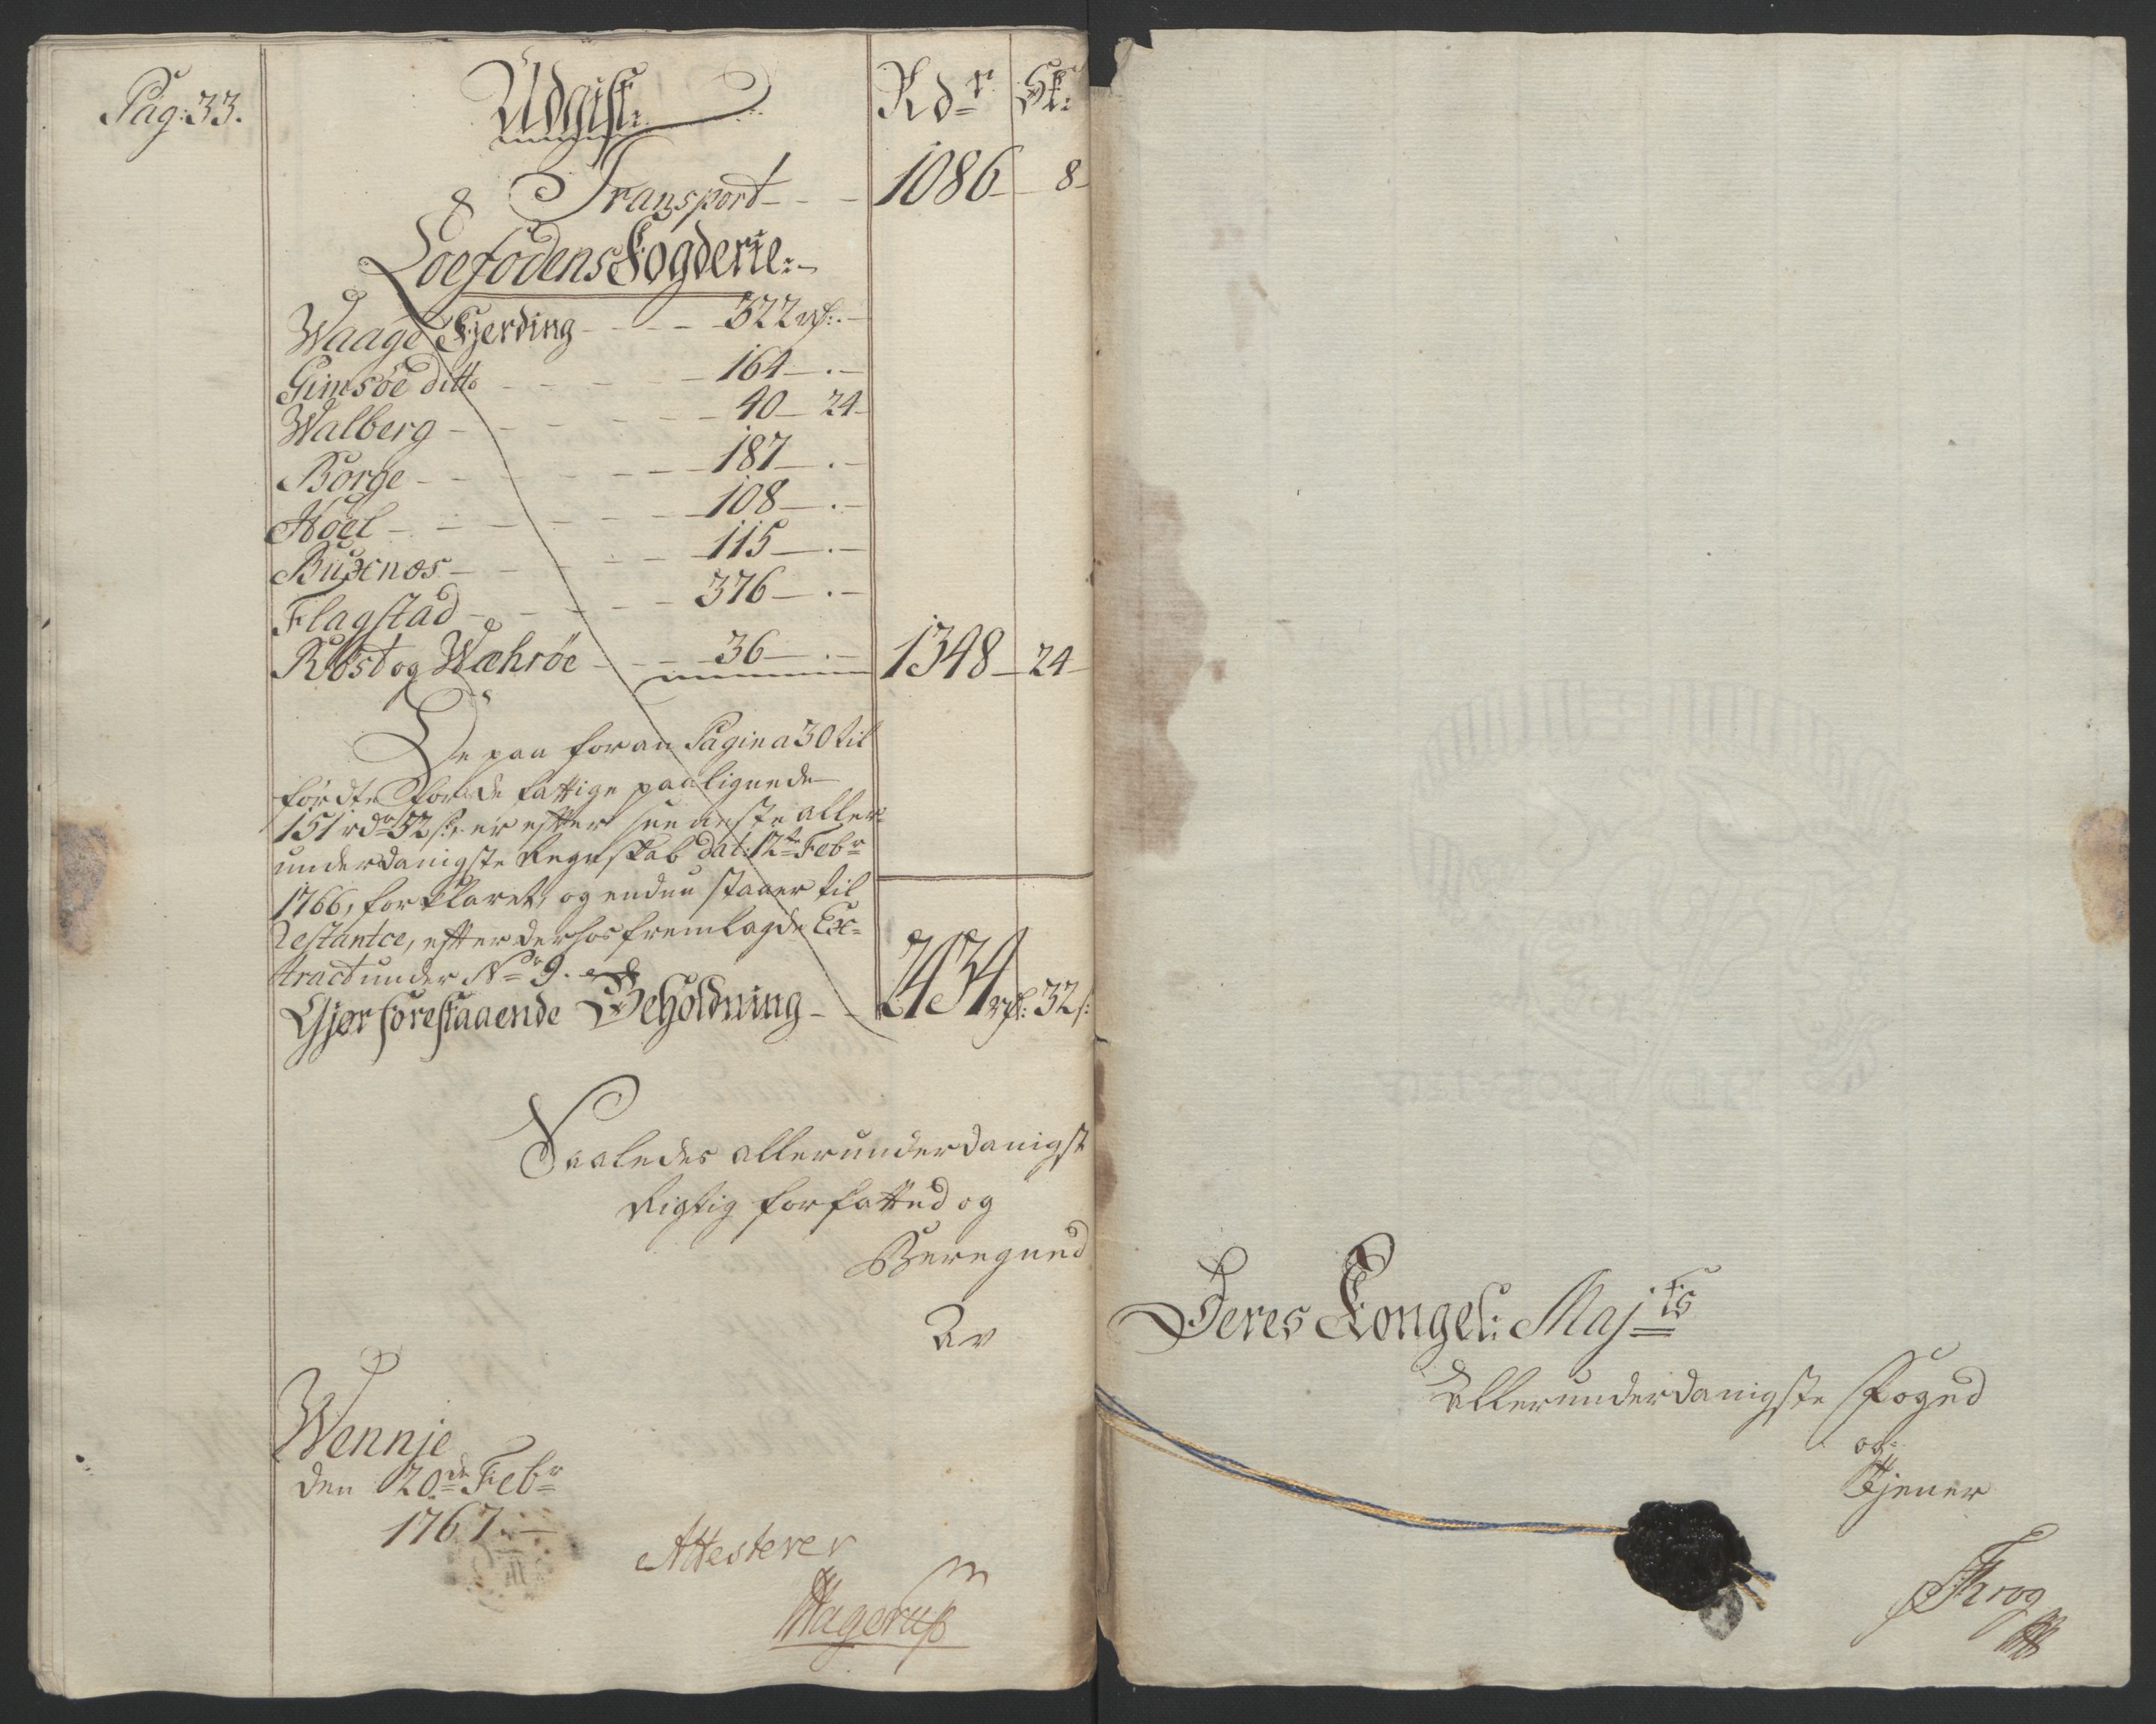 Pag: 33.
Udgift:
Rdr Sk:
Transport - - - 1086 - 8 -
Loefodens Fogderie:-
Waage Fjerding - - - - 322 rd: . -
Gimsöe ditto - - - - - 164 - . -
Walberg - - - - - - 40 - 24 -
Borge - - - - - - 187 - . -
Höel - - - - - - 108 - . -
Buxenæs - - - - - 115 - . -
Flagstad - - - - - 376 - . -
Röst og Wæhröe - - - - 36 - . - 1348 - 24 -
De paa foran Pagina 30 til
førdte for de fattige paalignede
151 rdr 52 s: er efter seeneste aller
underdanigste Regnskab dat: 12te Febr
1766, forklaret, og endnu staaer til
Restantce, efter derhos fremlagde Ex-
tract under No 9.
Gjør forestaaende Beholdning - - 2434 rd: 32 s:
Saaledes allerunderdanigst
Rigtig forfatted og
Beregned
Av
Wennje
den 20de Febr
1767. -
Attesterer
Hagerup
Deres Kongel: Majts
Allerunderdanigste Foged
og
Tjener
JThrog